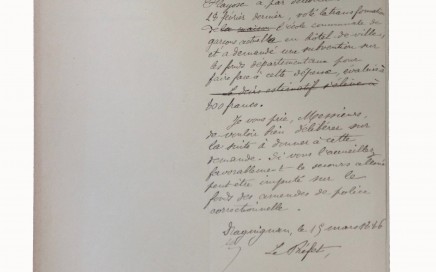 24 février dernier, voté la transformation
de la maison l'école communale de
garçons actuelle en hôtel de ville,
et a demandé une subvention sur
les fonds départementaux pour
faire face à cette dépense, évaluée à
des francs.
Je vous prie, Messieurs,
de vouloir bien délibérer sur
la suite à donner à cette
demande. Si vous l'accueillez
favorablement le secours
peut être imputé sur le
fonds des amendes de police
correctionnelle.
Draguignan, le 15 mars
Le Préfet,